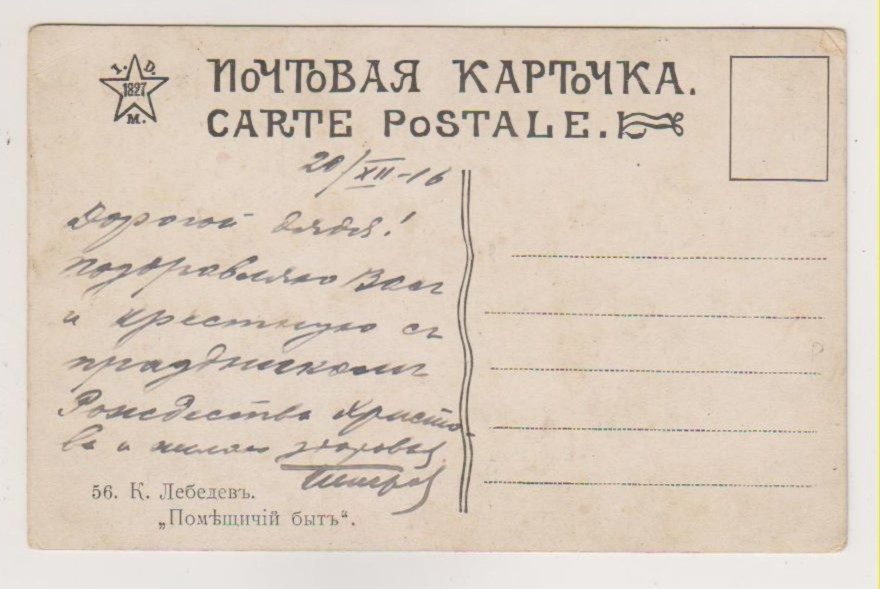 I. D.
1827
M.
ПОЧТОВАЯ КАРТОЧКА.
CARTE POSTALE.
20/XII-16
Дорогой дядя!
поздравляю Вас
и крестную съ
праздником
Рождества Христо-
ва и желаю здоровья
56. К. Лебедевъ.
„Помѣщичій бытъ“.